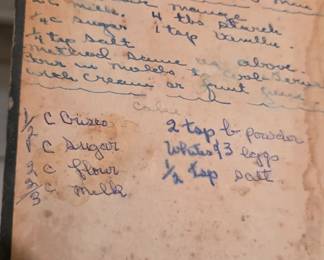 2 c milk. 4 tbs starch
1/4 c sugar 1 tsp vanilla.
1/4 tsp salt
method same as above
Pour in molds. cool. Serve
with cream or fruit
Cake
1/2 C Crisco 2 tsp b powder
1 C sugar Whites 3 eggs
2 c flour 1/2 tsp salt
2/3 c milk